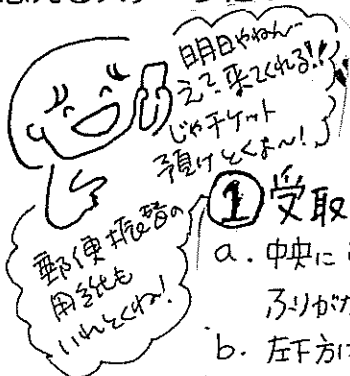 明日やねん…
えっ、来てくれる!!
じゃチケット
預けとくよ〜!
郵便振替の
用紙も
いれとくね!
① 受取
a. 中央に
ふりが
b. 左下方に